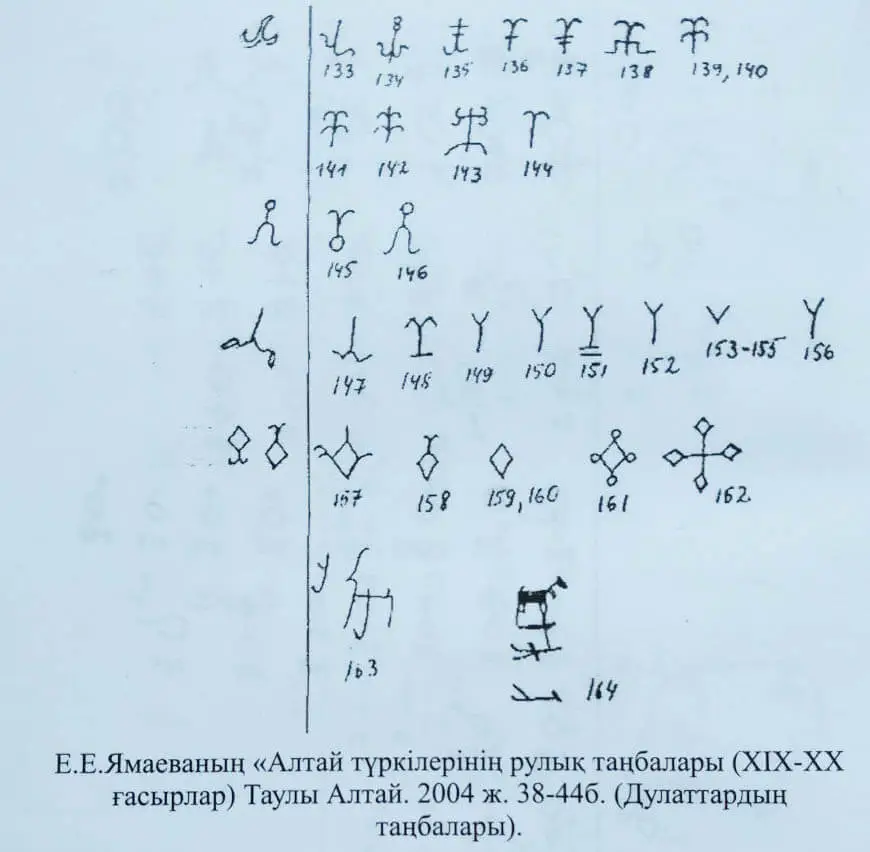 133 134 135 136 137 138 139, 140
141 142 143 144
145 146
147 148 149 150 151 152 153-155 156
157 158 159, 160 161 162
163 164
Е.Е.Ямаеваның «Алтай түркілерінің рулық таңбалары (XIX-XX
ғасырлар) Таулы Алтай. 2004 ж. 38-44б. (Дулаттардың
таңбалары).